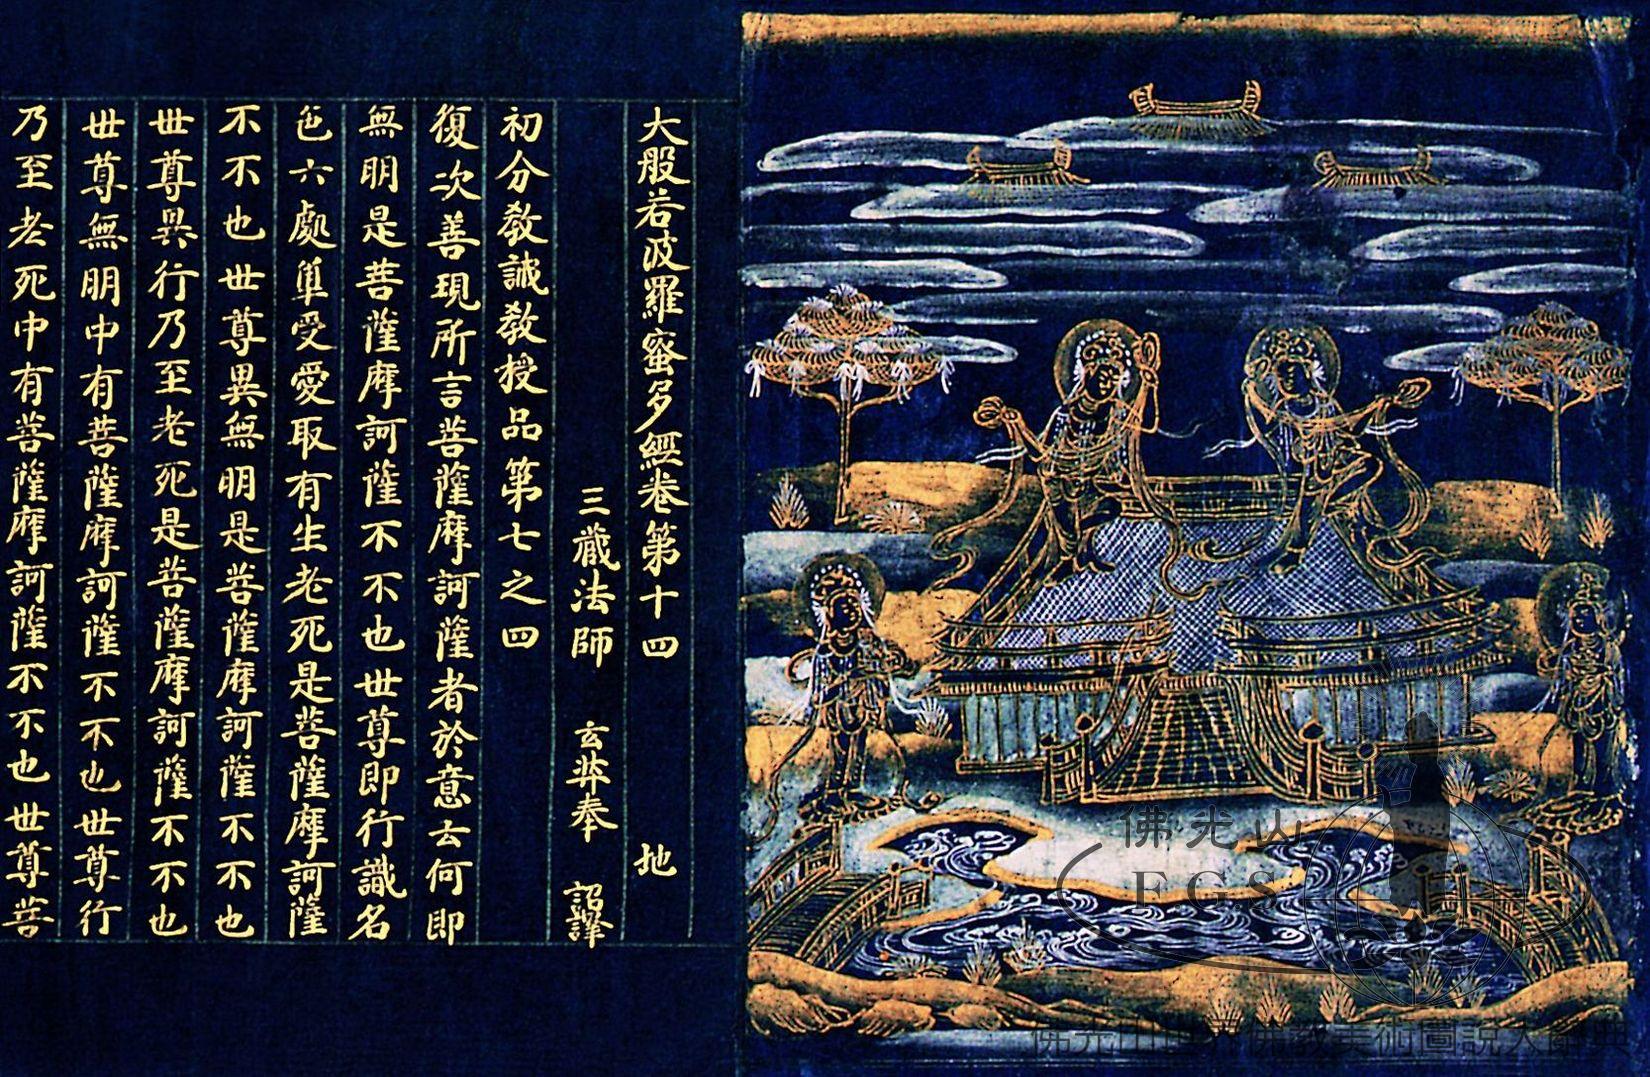 大般若波羅蜜多經卷第十四 地
三藏法師 玄奘奉 詔譯
初分教誡教授品第七之四
復次善現所言菩薩摩訶薩者於意云何即
無明是菩薩摩訶薩不不也世尊即行識名
色六處觸受愛取有生老死是菩薩摩訶薩
不不也世尊異無明是菩薩摩訶薩不不也
世尊異行乃至老死是菩薩摩訶薩不不也
世尊無明中有菩薩摩訶薩不不也世尊行
乃至老死中有菩薩摩訶薩不不也世尊菩
佛光山
FGS
佛光山世界佛教美術圖說大辭典